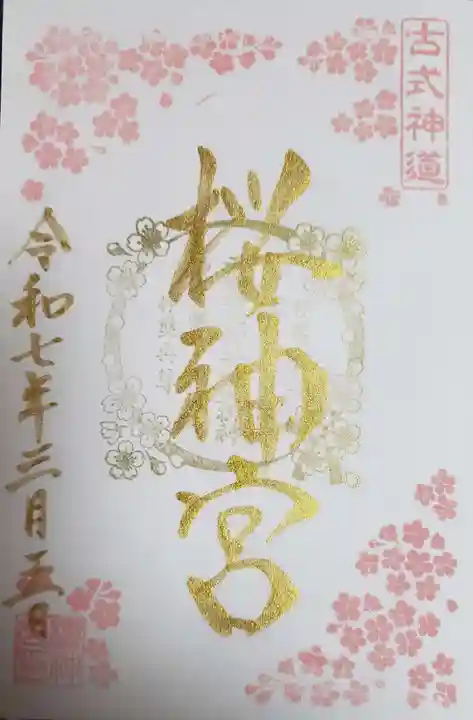 古式神道
桜神宮
令和七年三月五日